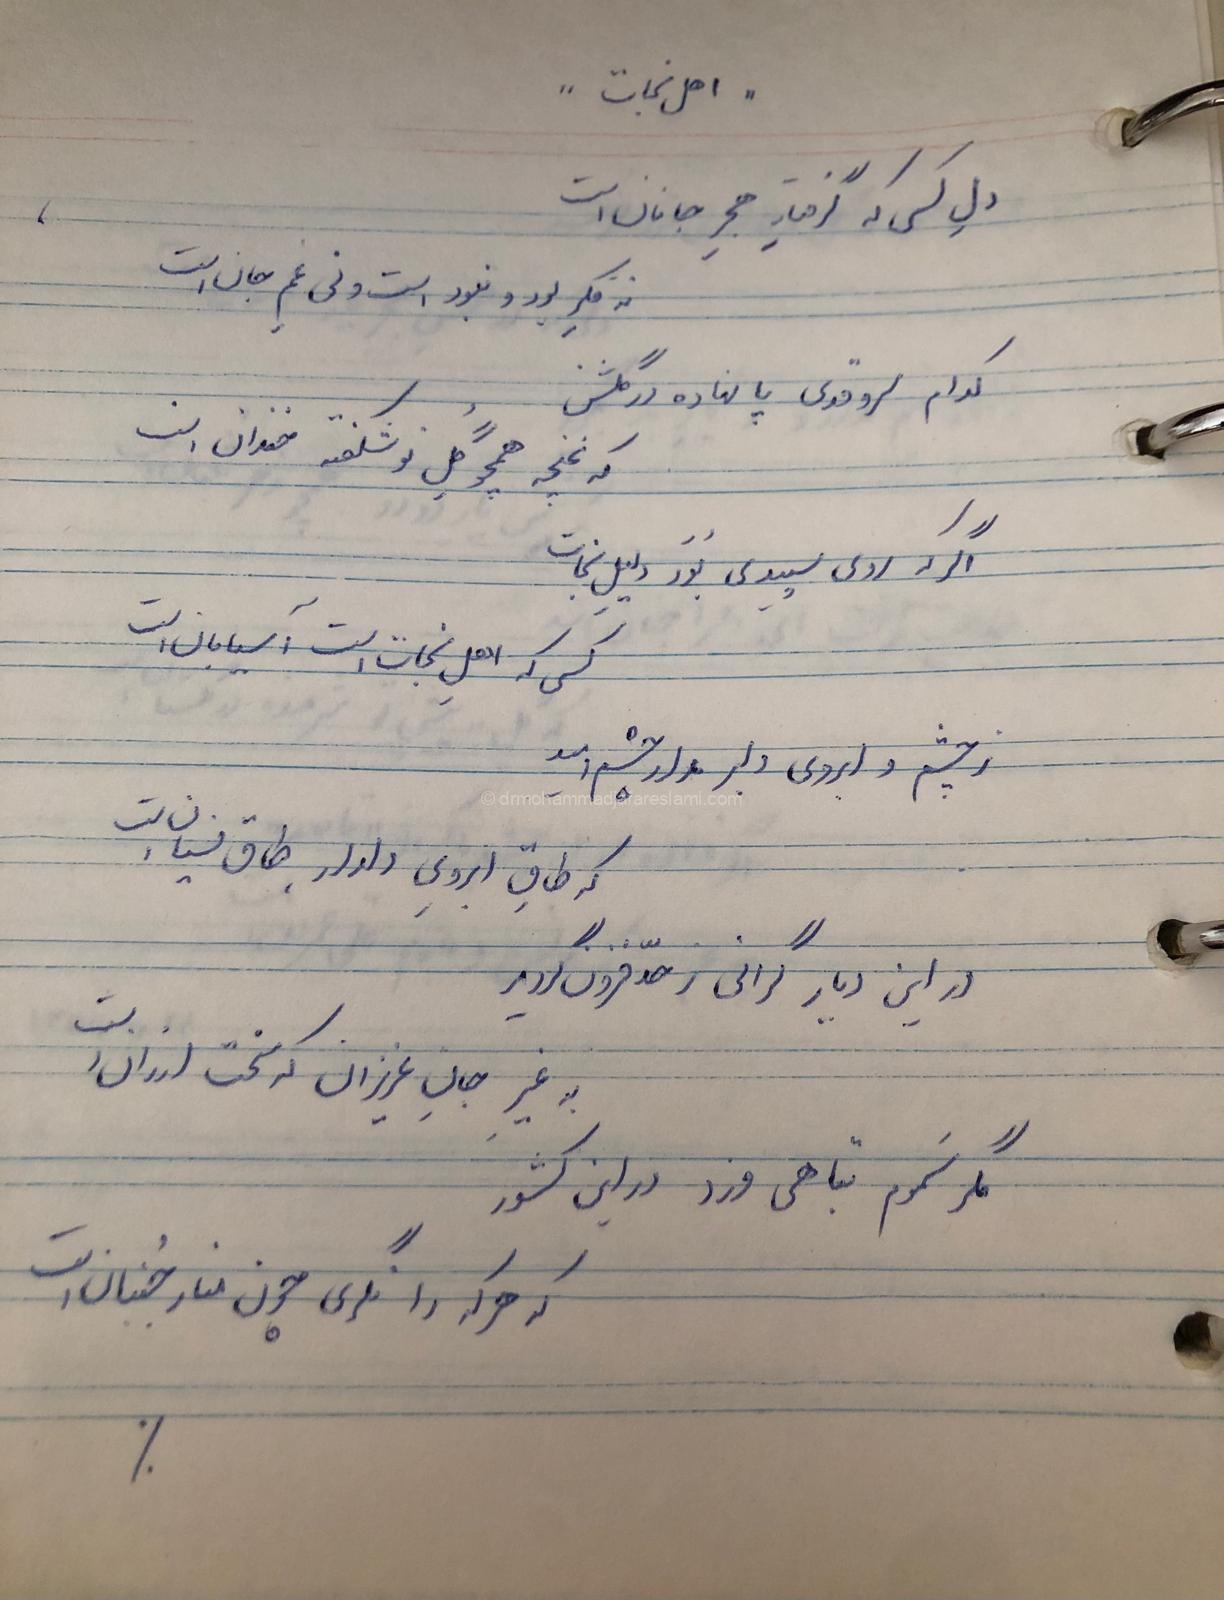 " اهل نجات "
دلِ کسی که گرفتارِ هجرِ جانان است
نه فکرِ بود و نبود است و نی غمِ جان است
کدام سرو قدی پا نهاده در گلشن
که غنچه همچو گُلِ نو شکفته خندان است
اگر که روی سپیدی بُوَد دلیلِ نجات
کسی که اهلِ نجات است آسیابان است
ز چشم و ابروی دلبر مدار چشم امید
که طاقِ ابرویِ دلدار طاق نسیان است
در این دیار گرانی ز حدّ فزون گردید
به غیرِ جانِ عزیزان که سخت ارزان است
مگر سَموم تباهی وزد در این کشور
که هر که را نگری چون منار جُنبان است
٪
© drmohammadjafareslami.com